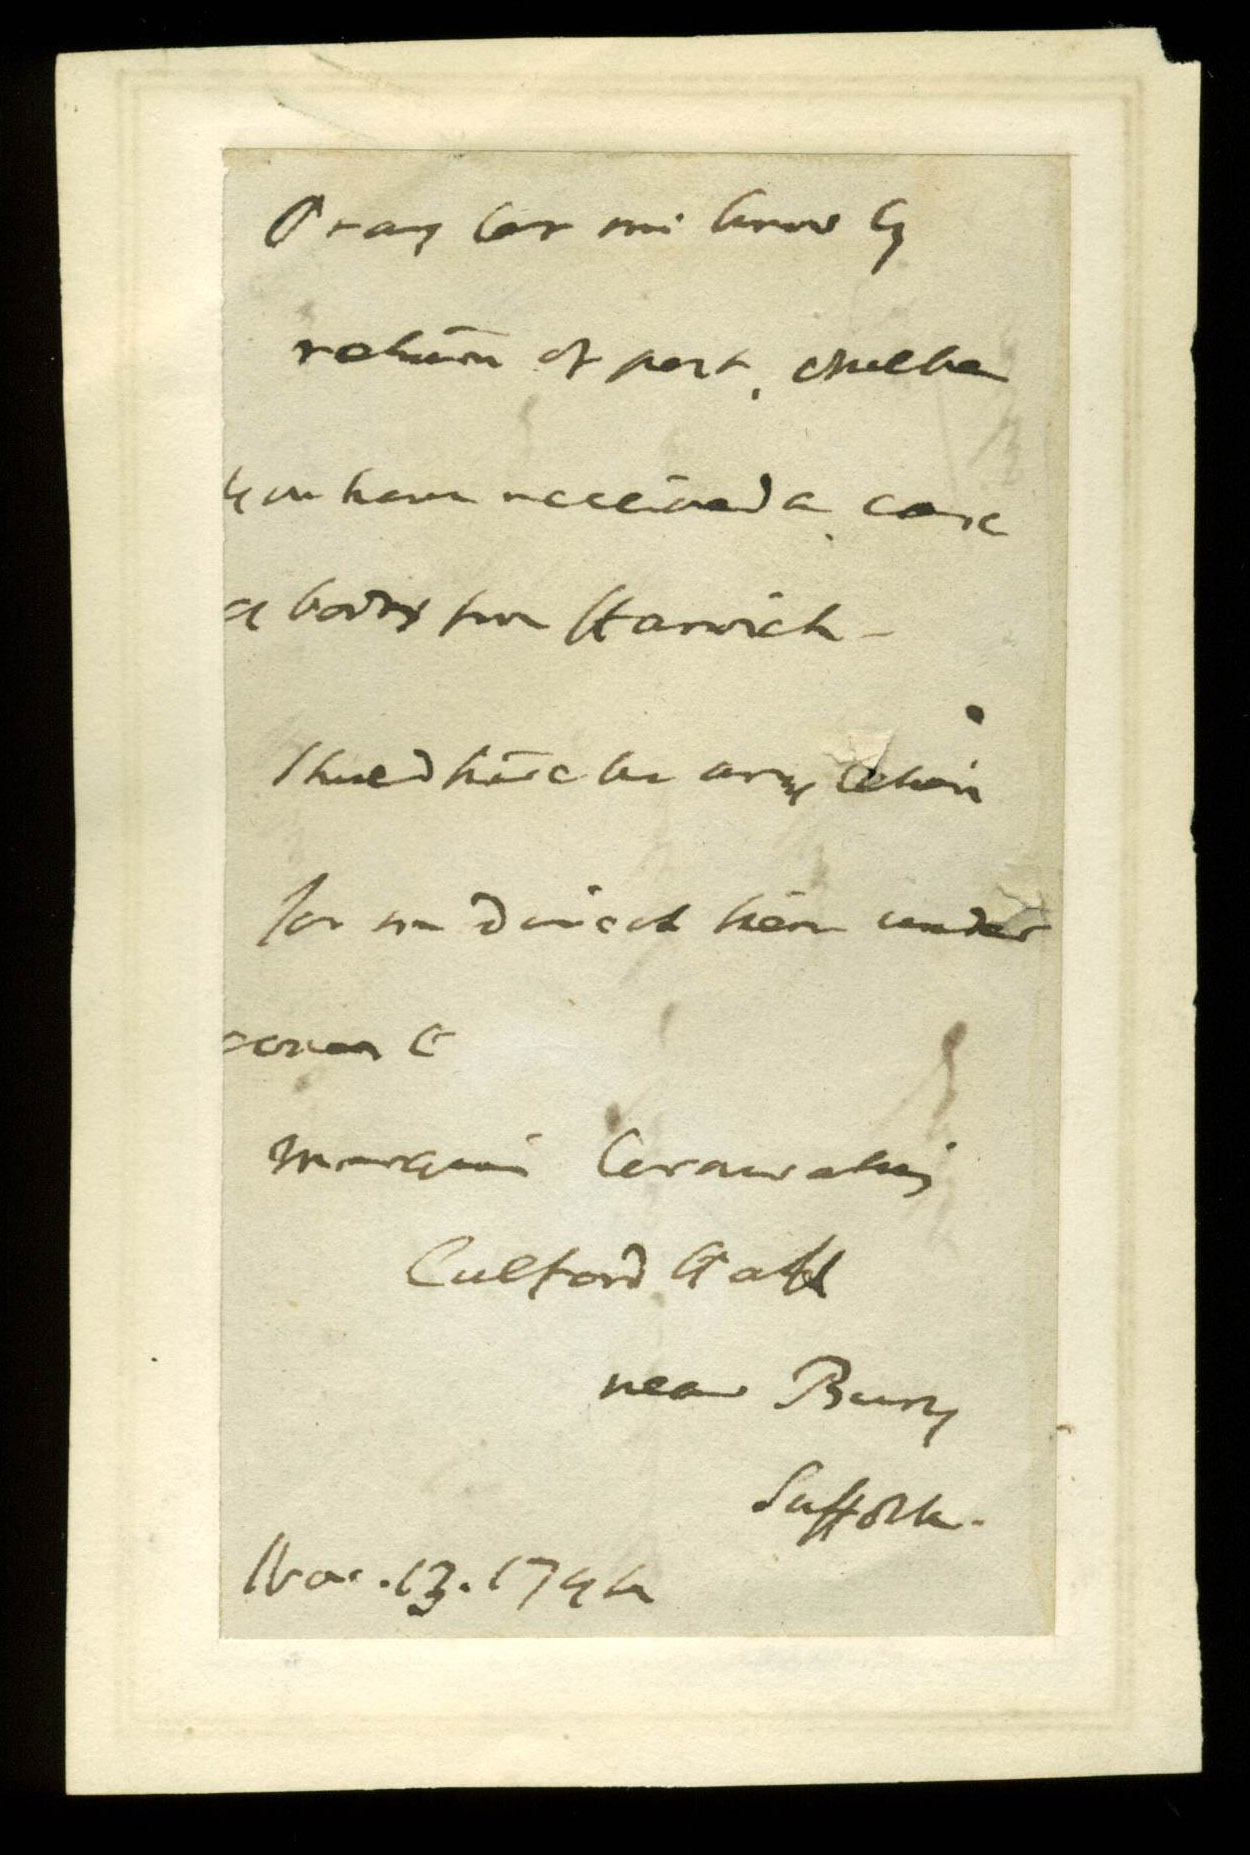 Pray let me know by
return of post, whether
you have received a case
of books from Harwich -
Should there be any letters
for me direct them under
cover to
Marquis Cornwallis
Culford Hall
near Bury
Suffolk.
Nov. 13. 179